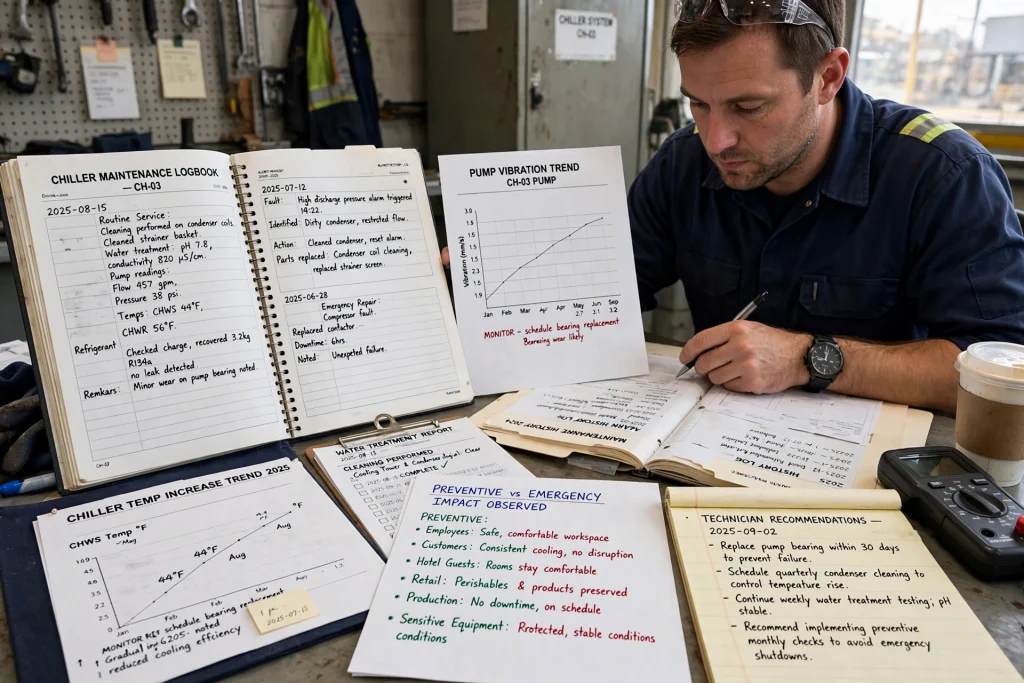 CHILLER SYSTEM
CH-03
CHILLER MAINTENANCE LOGBOOK
— CH-03
2025-08-15
Routine Service:
Cleaning performed on condenser coils.
Cleaned strainer basket.
Water treatment: pH 7.8,
conductivity 820 µS/cm.
Pump readings:
Flow 457 gpm,
Pressure 38 psi.
Temps: CHWS 44°F,
CHWR 56°F.
Refrigerant
Checked charge, recovered 3.2kg
R134a
no leak detected.
Remkars: Minor wear on pump bearing noted.
CH-03
2025-07-12
Fault: High discharge pressure alarm triggered
14:22.
Identified: Dirty condenser, restrited flow.
Action: Cleaned condenser, reset alarm.
Parts replaced: Condenser coil cleaning,
replaced strainer screen.
2025-06-28
Emergency Repair:
Compressor fault.
Replaced contactor.
Downtime: 6hrs.
Noted: Unexpeted failure.
PUMP VIBRATION TREND
CH-03 PUMP
Vibration (mm/s)
3.0
1.5
1.5
2.3
1.5
1.9
Jan Feb Mar Apr Apr May Jun Sep
2.7 3.1 3.2
MONITOR - schedule bearing replacement
Bearneing wear likely
MAINTENANCE HISTORY
ALARM HISTORY LOG
HISTORY LOG
2025
WATER TREATMENT REPORT
2025-08-15
CLEANING PERFORMED
Cooling Tower & Condenser Clear
COMPLETE ✓
CHILLER TEMP INCREASE TREND 2025
CHWS Temp °F
44°F
44°F
Aug
Aug
°F
4.5
2.5
0
Jan
Feb
Feb
Mar
Apr
1.2
MONITOR schedule bearing replacement
Gradual noted
reduced cooling efficiency
2025-09-15
PREVENTIVE vs EMERGENCY
IMPACT OBSERVED
PREVENTIVE:
• Employees: Safe, comfortable workspace
• Customers: Consistent cooling, no disruption
• Hotel Guests: Rooms stay comfortable
• Retail: Perishables & products preserved
• Production: No downtime, on schedule
• Sensitive Equipment: Rrotected, stable conditions
conditions
TECHNICIAN RECOMMENDATIONS —
2025-09-02
- Replace pump bearing within 30 days
to prevent failure.
- Schedule quarterly condenser cleaning to
control temperature rise.
- Continue weekly water treatment testing; pH
stable.
- Recommend implementing preventive
monthly checks to avoid emergency
shutdowns.